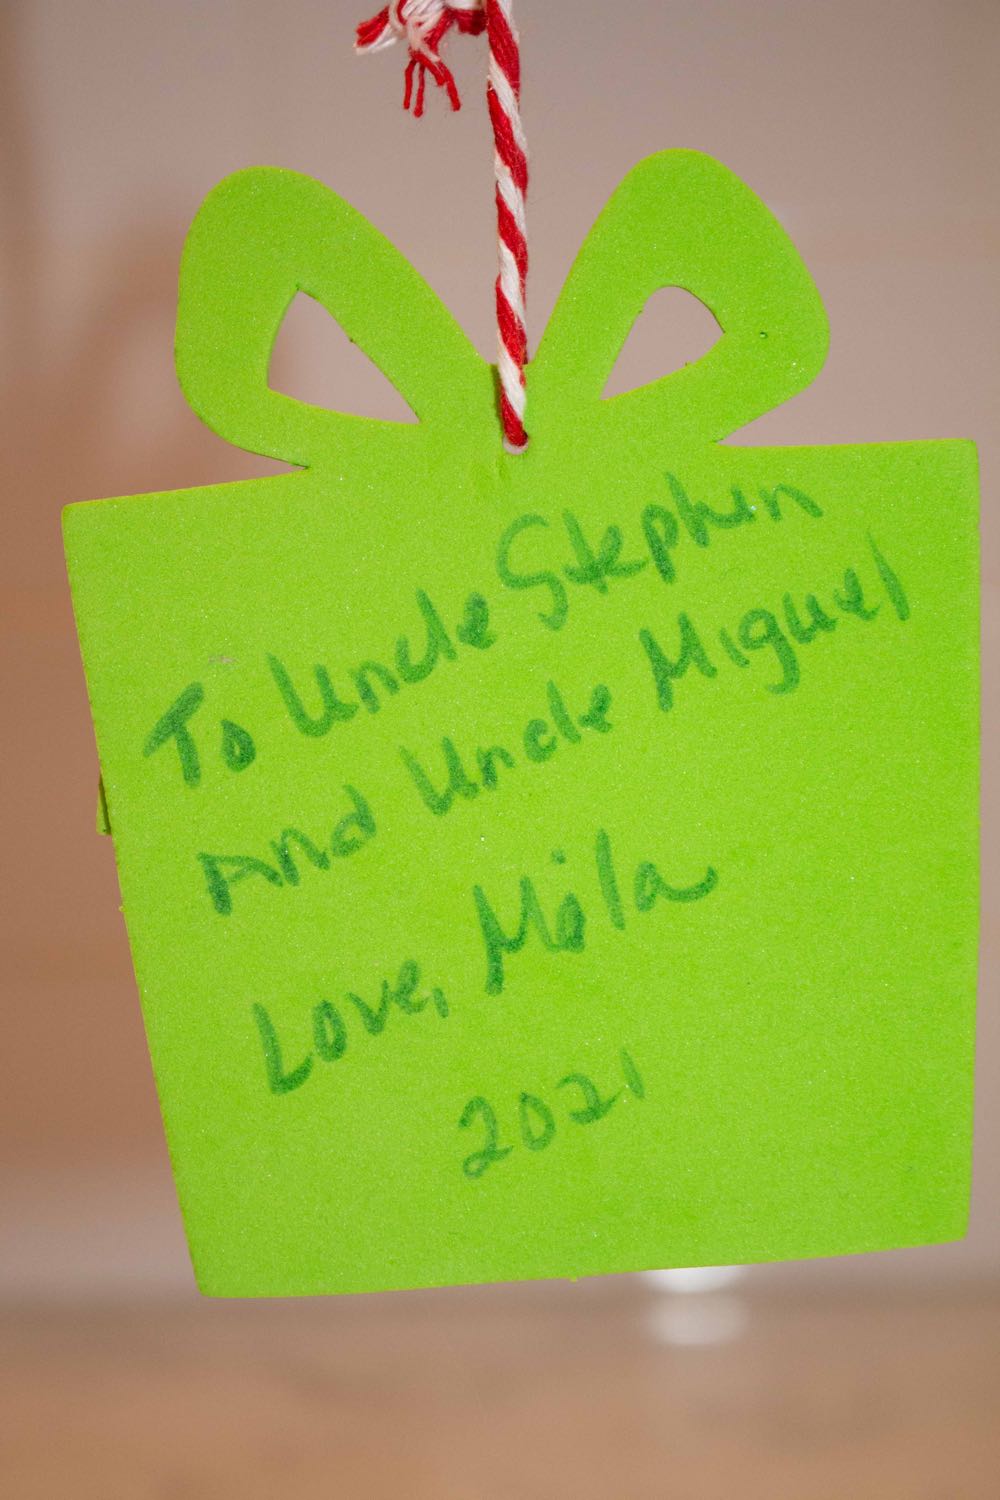 To Uncle Stephen
And Uncle Miguel
Love, Mila
2021